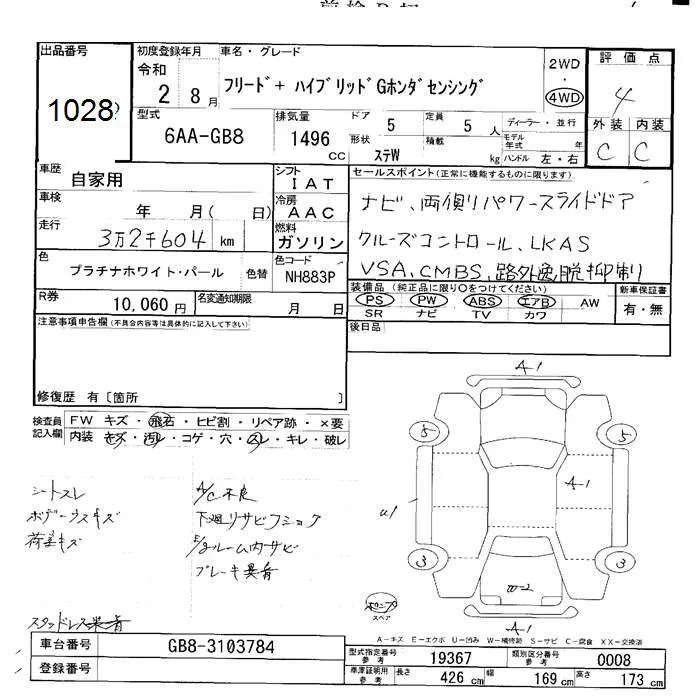 出品番号
1028
初度登録年月
令和
2 8月
車名・グレード
フリード+ ハイブリッドGホンダセンシング
2WD
・
4WD
評価点
4
外装 内装
C C
型式
6AA-GB8
排気量
1496
CC
ドア
5
定員
5 人
ディーラー・並行
形状
ステW
積載
kg
モデル年式
年
ハンドル 左・右
車歴
自家用
シフト
IAT
セールスポイント(正常に機能するものに限ります)
ナビ、両側パワースライドドア
クルーズコントロール、LKAS
VSA、CMBS、路外逸脱抑制
車検
年 月( 日)
冷房
AAC
走行
3万2千604 km
燃料
ガソリン
色
プラチナホワイト・パール
色替
色コード
NH883P
装備品 (純正品に限り○をつけてください)
PS PW ABS エアB AW
SR ナビ TV カワ
新車保証書
有・無
R券
10,060円
名変通知期限
月 日
後日品
注意事項申告欄(不具合内容等は具体的に記入して下さい)
修復歴 有〔箇所 〕
検査員記入欄
FW キズ・飛石・ヒビ割・リペア跡・×要
内装 キズ・汚レ・コゲ・穴・スレ・キレ・破レ
シートスレ
ボデー スキズ
荷室キズ
A/C不良
下廻リサビフショク
E/gルーム内サビ
ブレーキ異音
スタッドレス装着
A-1
5 5
A-1
U1
3 3
W-2
スペア
A-1
A-キズ E-エクボ U-凹み W-補修跡 S-サビ C-腐食 XX-交換済
車台番号
GB8-3103784
登録番号
型式指定番号 参考
19367
類別区分番号 参考
0008
車庫証明用 参考
長さ 426 cm
幅 169 cm
高さ 173 cm